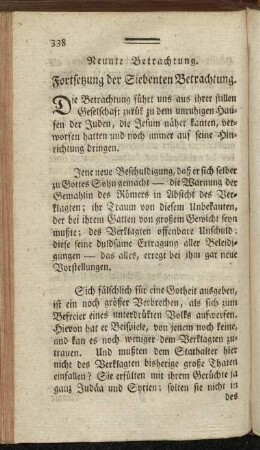 338
Neunte Betrachtung.
Fortsetzung der Siebenten Betrachtung.
Die Betrachtung führt uns aus ihrer stillen
Geselschaft zurük zu dem unruhigen Hau-
fen der Juden, die Jesum näher kanten, ver-
worfen hatten und noch immer auf seine Hin-
richtung dringen.
Jene neue Beschuldigung, daß er sich selber
zu Gottes Sohn gemacht — die Warnung der
Gemahlin des Römers in Absicht des Ver-
klagten; ihr Traum von diesem Unbekanten,
der bei ihrem Gatten von großem Gewicht seyn
mußte; des Verklagten offenbare Unschuld;
diese seine duldsame Ertragung aller Beleidi-
gungen — das alles, erregt bei ihm gar neue
Vorstellungen.
Sich fälschlich für eine Gotheit ausgeben,
ist ein noch größer Verbrechen, als sich zum
Befreier eines unterdrükten Volks aufwerfen.
Hievon hat er Beispiele, von jenem noch keine,
und kan es noch weniger dem Verklagten zu-
trauen. Und mußten dem Stathalter hier
nicht des Verklagten bisherige große Thaten
einfallen? Sie erfülten mit ihrem Gerüchte ja
ganz Judäa und Syrien; solten sie nicht in
des